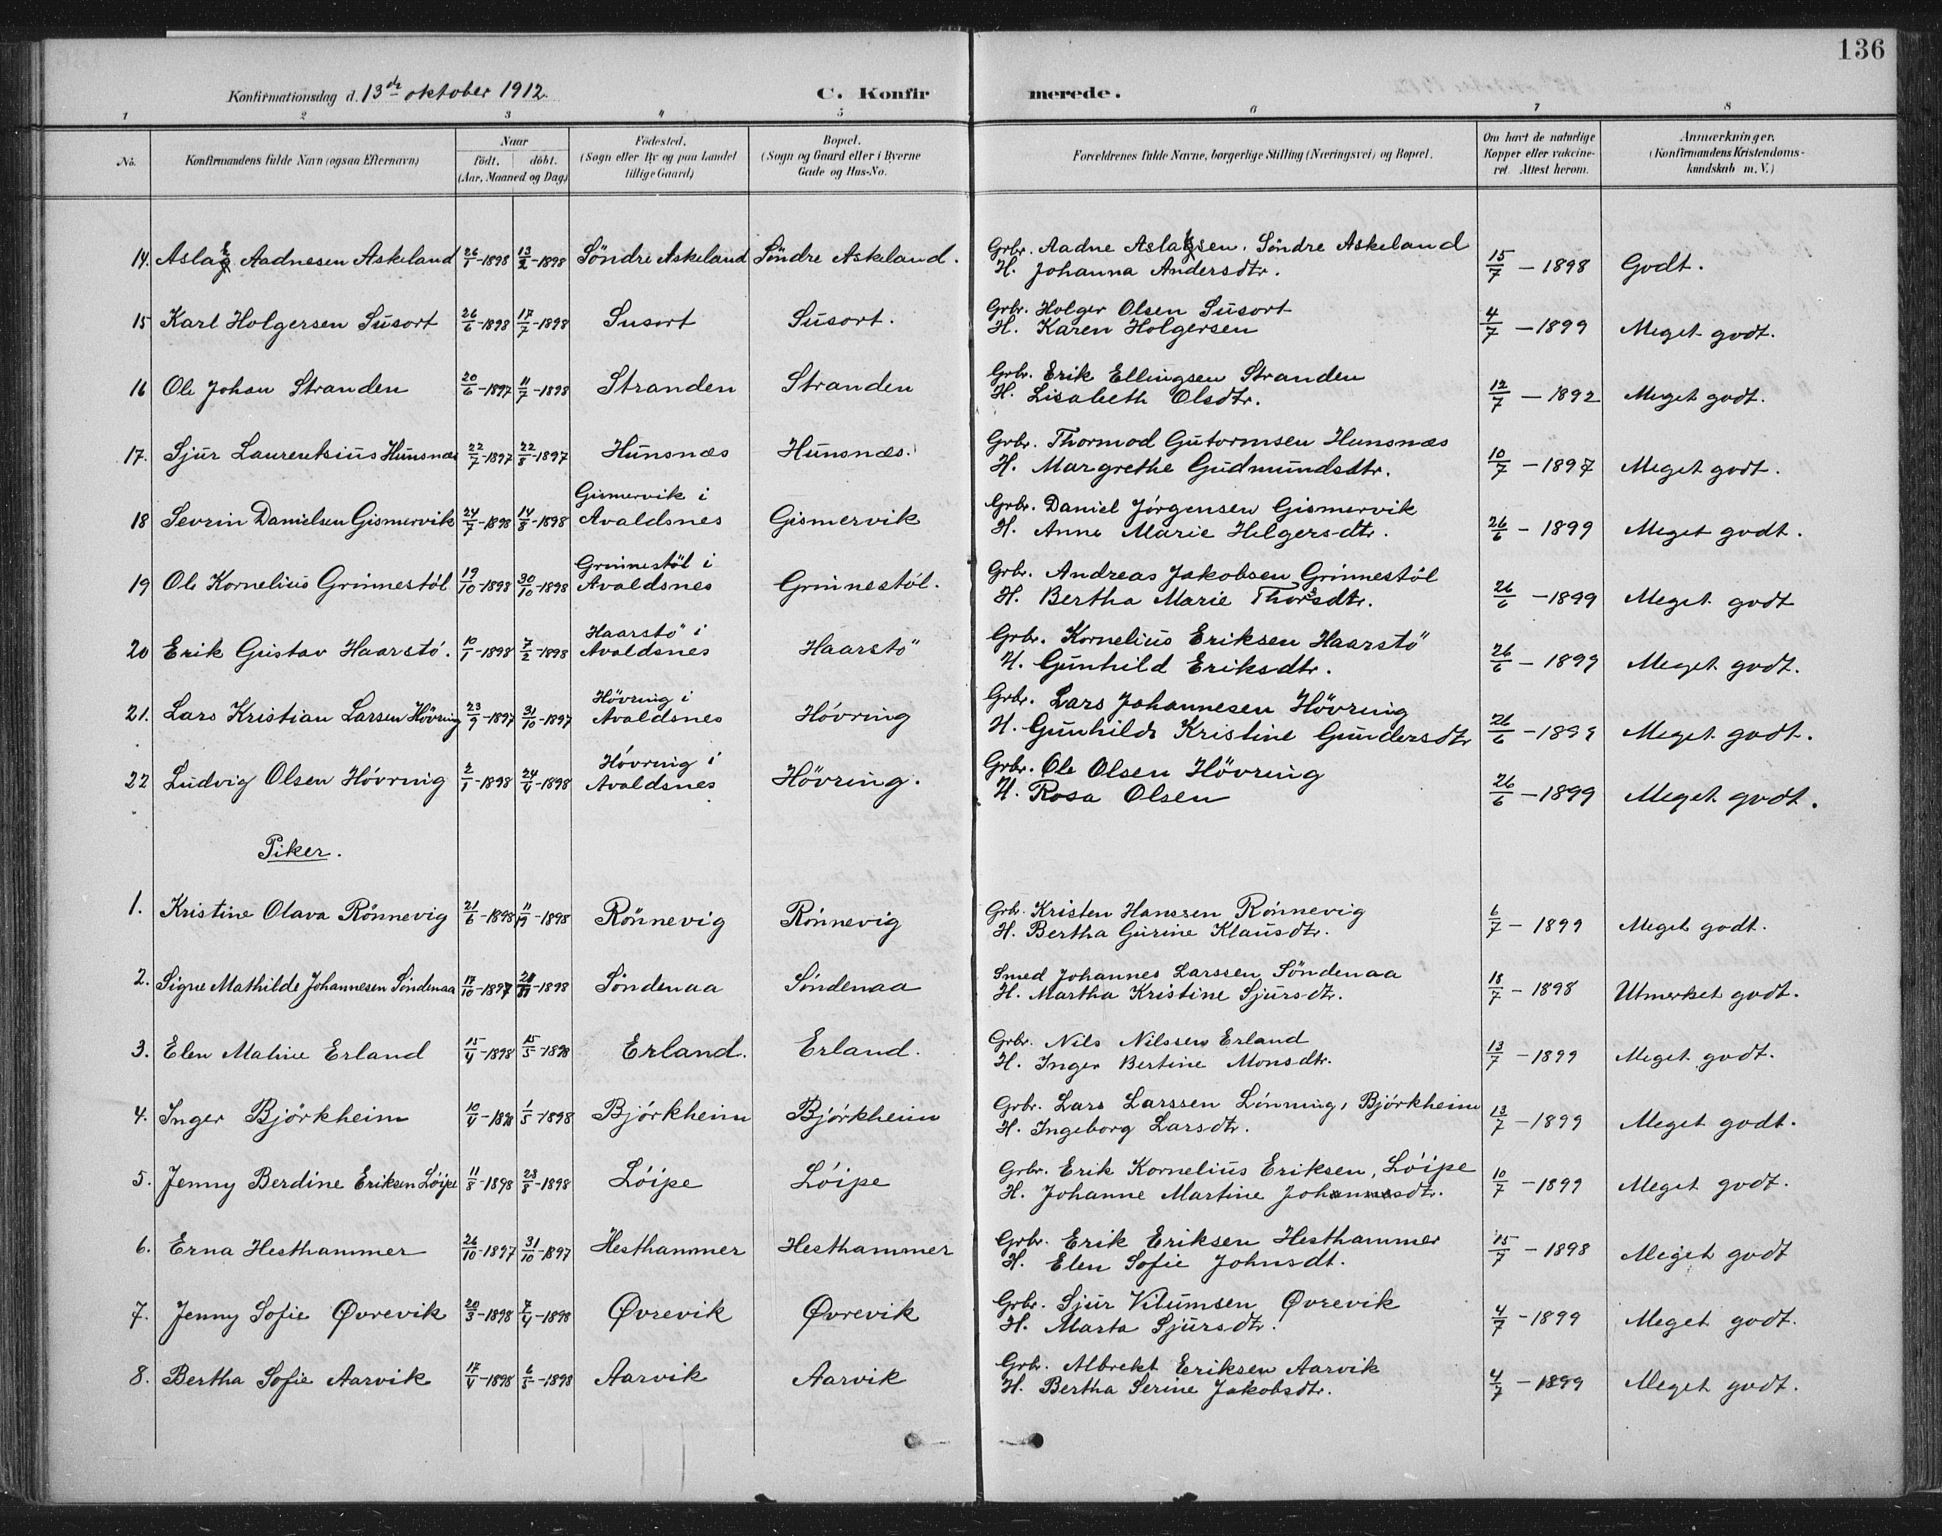 136
Konfirmationsdag d. 13de oktober 1912. C. Konfirmerede.
1 2 3 4 5 6 7 8
No. Konfirmandens fulde Navn (ogsaa Efternavn) Naar födt. döbt. (Aar, Maaned og Dag) Födested. (Sogn eller By og paa Landet tillige Gaard) Bopæl. (Sogn og Gaard eller i Byerne Gade og Hus-No. Forældrenes fulde Navne, borgerlige Stilling (Næringsvei) og Bopæl. Om havt de naturlige Kopper eller vakcineret. Attest herom. Anmærkninger. (Konfirmandens Kristendomskundskab m. V.)
14. Aslak Aadnesen Askeland 26/1-1898 13/2-1898 Søndre Askeland Søndre Askeland. Grbr. Aadne Aslaksen. Søndre Askeland
H. Johanna Andersdtr. 15/7 - 1898 Godt.
15 Karl Holgersen Susort 26/6-1898 17/7-1898 Susort Susort. Grbr. Holger Olsen Susort
H. Karen Holgersen 4/7 - 1899 Meget godt.
16 Ole Johan Stranden 20/6-1897 11/7-1898 Stranden Stranden Grbr. Erik Ellingsen Stranden
H. Lisabeth Olsdtr. 12/7 - 1892 Meget godt.
17. Sjur Laurentsius Hunsnæs 22/7-1897 22/8-1897 Hunsnæs Hunsnæs. Grbr. Thormod Gutormsen Hunsnæs
H. Margrethe Gudmundsdtr. 10/7 - 1897 Meget godt.
18 Sevrin Danielsen Gismervik 24/7-1898 14/8-1898 Gismervik i Avaldsnes Gismervik Grbr. Daniel Jørgensen Gismervik
H. Anne Marie Helgersdtr. 26/6 - 1899 Meget godt.
19 Ole Kornelius Grinnestøl 19/10-1898 30/10-1898 Grinnestöl i Avaldsnes Grinnestøl. Grbr. Andreas Jakobsen Grinnestöl
H. Bertha Marie Thorsdtr. 26/6 - 1899 Meget godt
20 Erik Gustav Haarstø. 10/1-1898 7/2-1898 Haarstö i Avaldsnes Haarstö Grbr. Kornelius Eriksen Haarstö
H. Gunhild Eriksdtr. 26/6 - 1899 Meget godt.
21. Lars Kristian Larsen Hövring 23/9-1897 31/10-1897 Hövring i Avaldsnes Høvring Grbr. Lars Johannesen Hövring
H. Gunhilde Kristine Gundersdtr 26/6 - 1899 Meget godt.
22 Ludvig Olsen Høvring 2/1-1898 24/4-1898 Høvring i Avaldsnes Hövring. Grbr. Ole Olsen Hövring
H. Rosa Olsen 26/6 - 1899 Meget godt.
Piker.
1. Kristine Olava Rönnevig 21/6-1898 11/-1898 Rönnevig Rønnevig Grbr. Kristen Hanssen Rønnevig
H. Bertha Gurine Klausdtr. 6/7 - 1899 Meget godt.
2. Signe Mathilde Johannesen Søndenaa 17/10-1897 -1898 Søndenaa Søndenaa Smed Johannes Larssen Søndenaa
H. Martha Kristine Sjursdtr. 18/7 - 1898 Utmerket godt.
3. Elen Maline Erland 15/4-1898 15/5-1898 Erland. Erland. Grbr. Nils Nilssen Erland
H. Inger Bertine Monsdtr. 13/7 - 1899 Meget godt.
4. Inger Bjørkheim 10/4-1898 1/5-1898 Bjørkheim Bjørkheim Grbr. Lars Larssen Lønning, Bjørkheim
H. Ingeborg Larsdtr. 13/7 - 1899 Meget godt.
5. Jenny Berdine Eriksen Løipe 11/8-1898 23/8-1898 Løipe Løipe Grbr. Erik Kornelius Eriksen, Løipe
H. Johanne Martine Johannesdtr. 10/7 - 1899 Meget godt.
6. Erna Hesthammer 26/10-1897 31/10-1897 Hesthammer Hesthammer Grbr. Erik Eriksen Hesthammer
H. Elen Sofie Johnsdt. 15/7 - 1898 Meget godt
7. Jenny Sofie Øvrevik 20/3-1898 7/4-1898 Øvrevik Øvrevik Grbr. Sjur Vilumsen Øvrevik
H. Marta Sjursdtr. 4/7 - 1899 Meget godt.
8. Bertha Sofie Aarvik 17/4-1898 6/5-1898 Aarvik Aarvik Grbr. Albrekt Eriksen Aarvik
H. Bertha Serine Jakobsdtr. 4/7 - 1899 Meget godt.